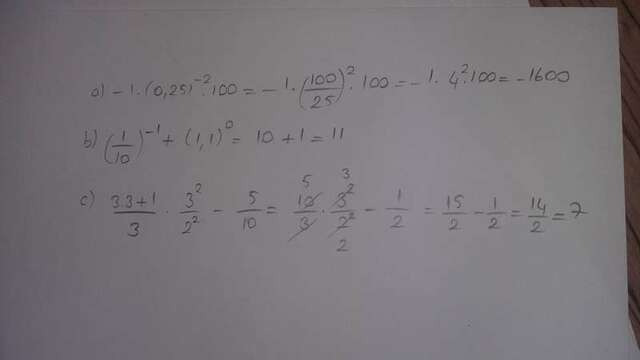 a) - 1 · (0,25)⁻² · 100 = - 1 · (100/25)² · 100 = - 1 · 4² · 100 = - 1600
b) (1/10)⁻¹ + (1,1)⁰ = 10 + 1 = 11
c) 3·3+1/3 · 3²/2² - 5/10 = 10/3 · 3²/2² - 1/2 = 15/2 - 1/2 = 14/2 = 7
5 3
2